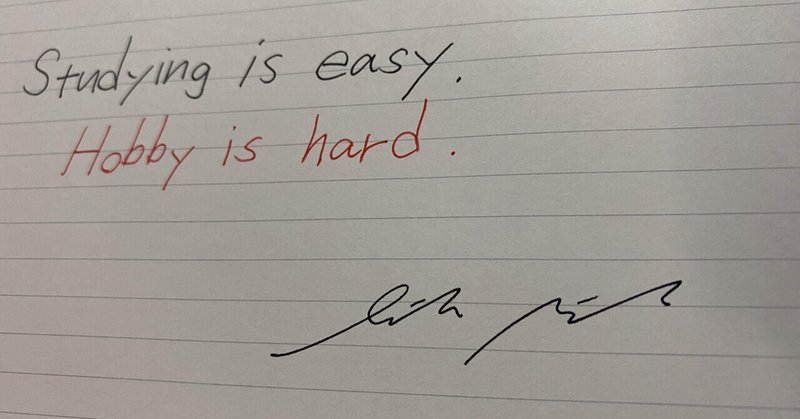 Studying is easy.
Hobby is hard.